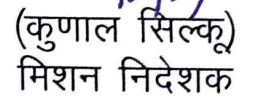 (कुणाल सिल्कू)
मिशन निदेशक